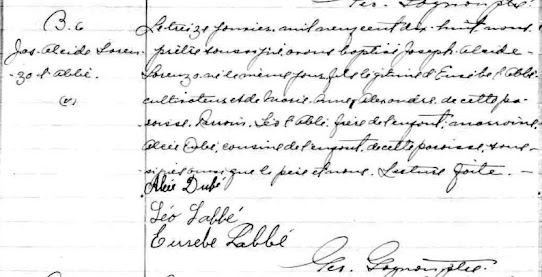 B. 6
Jos. Alcide Loren-
zo l'abbé.
Le treize janvier, mil neuf cent dix-huit, nous
prêtre soussigné avons baptisé Joseph Alcide-
Lorenzo, né le même jour, fils légitime d'Eusèbe l'abbé
cultivateur et de Marie Anne Alexandre, de cette pa-
roisse. Parrain, Léo l'Abbé, frère de l'enfant, marraine,
Alice Dubé, cousine de l'enfant, de cette paroisse, sous-
signés ainsi que le père et nous. Lecture faite. —
Alice Dubé
Léo Labbé
Eusebe Labbé